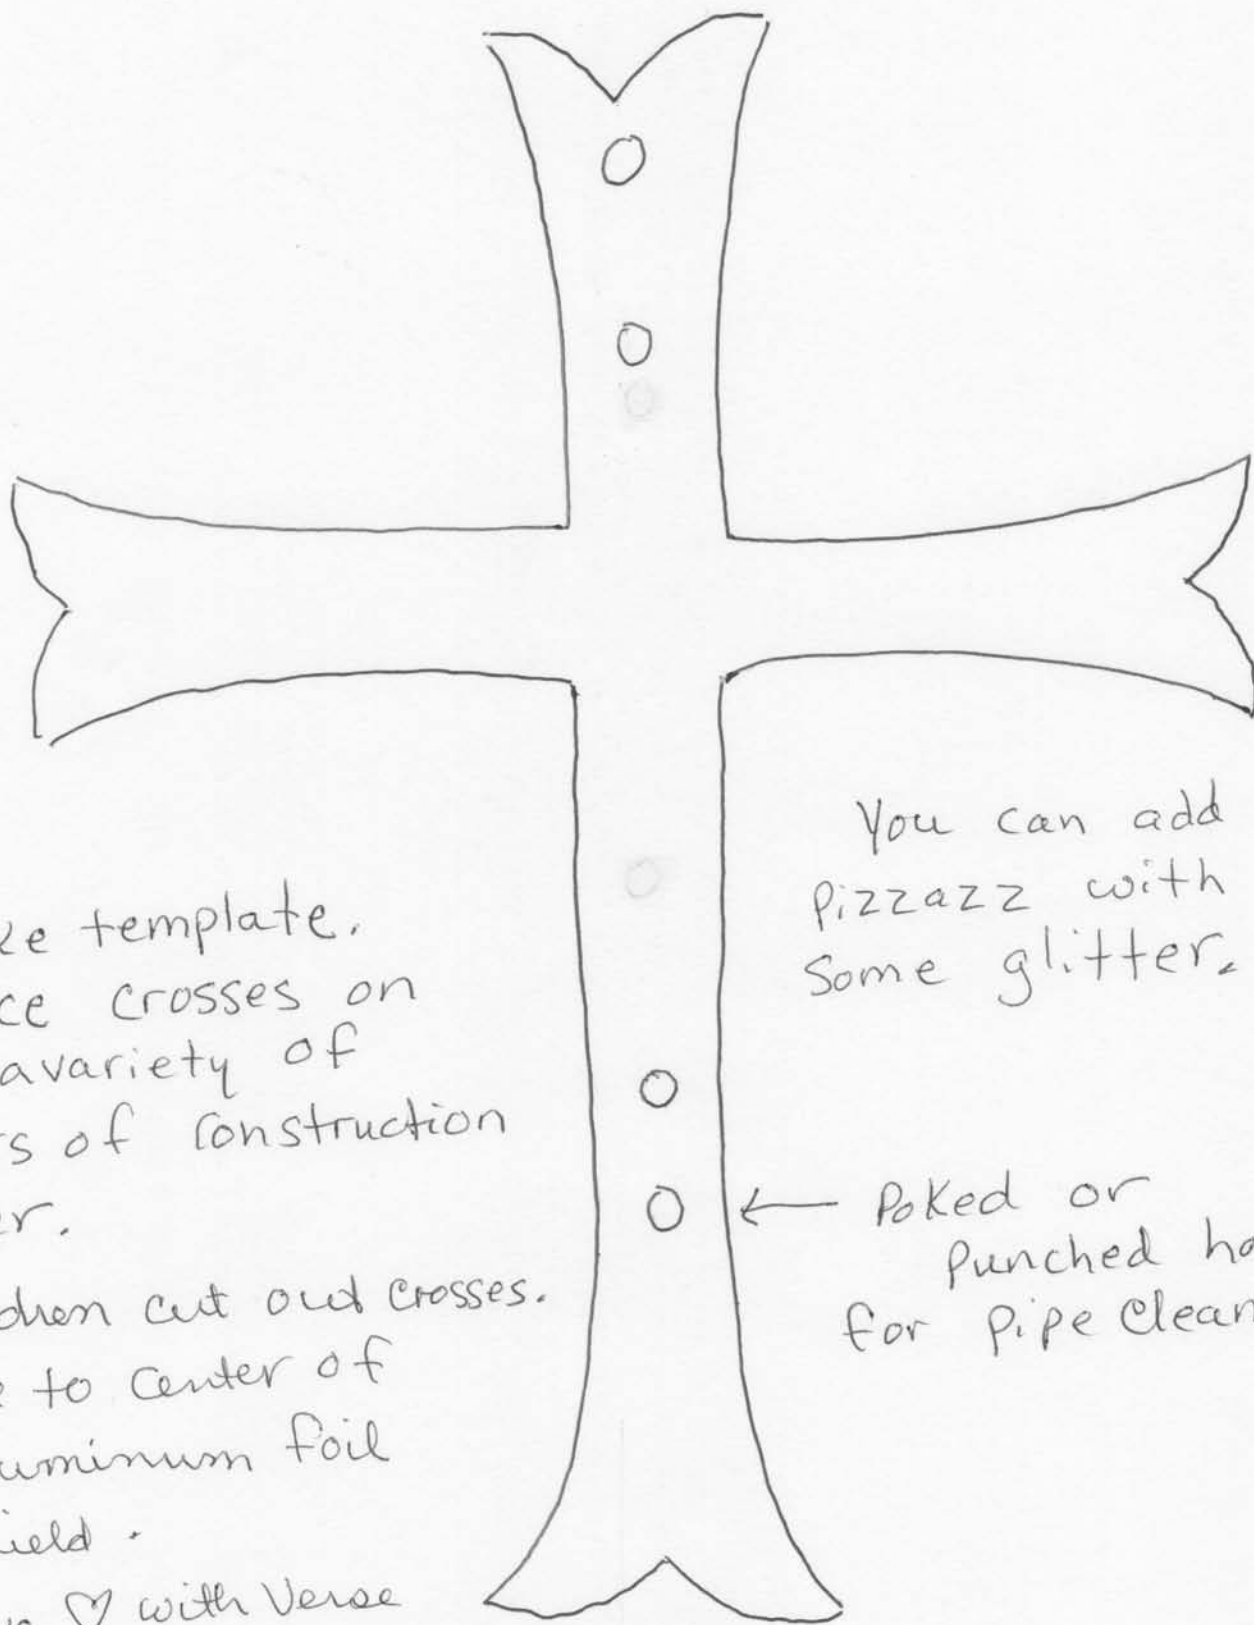 template.
crosses on
avariety of
of construction
cut out crosses.
to center of
foil
♡ with Verse
You can add
Pizzazz with
Some glitter.
← Poked or
Punched
for Pipe